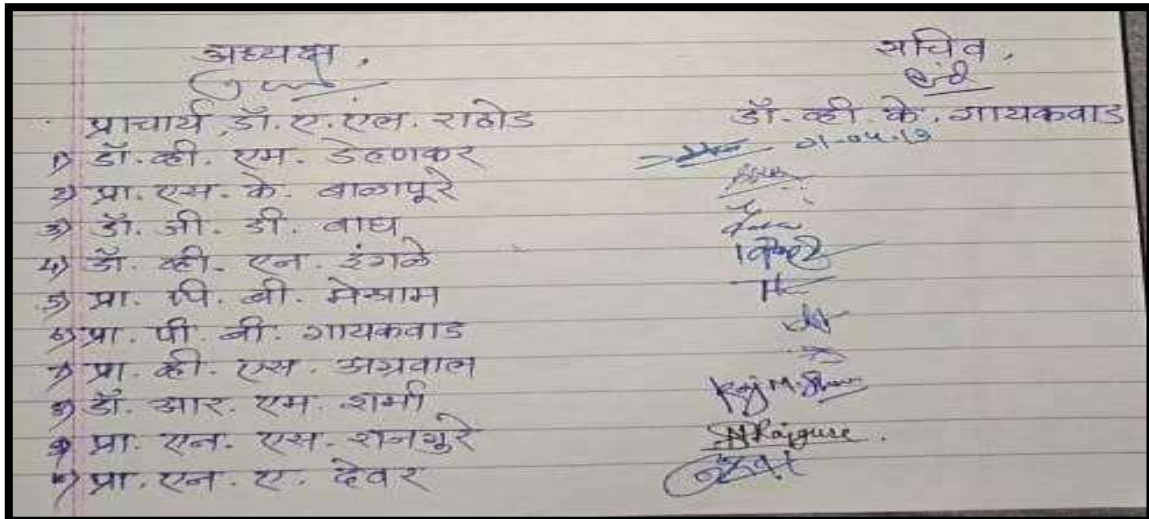 अध्यक्ष, सचिव,
प्राचार्य डॉ. ए. एल. राठोड डॉ. व्ही. के. गायकवाड
1) डॉ. व्ही. एम. डेहणकर 01-04-19
2) प्रा. एस. के. बाळापूरे
3) डॉ. जी. डी. वाघ
4) डॉ. व्ही. एन. इंगळे
5) प्रा. पी. बी. मेश्राम
6) प्रा. पी. बी. गायकवाड
7) प्रा. व्ही. एस. अग्रवाल
8) डॉ. आर. एम. शर्मा Raj M. Sharma
9) प्रा. एन. एस. राजगुरे NRajgure.
10) प्रा. एन. ए. देवर